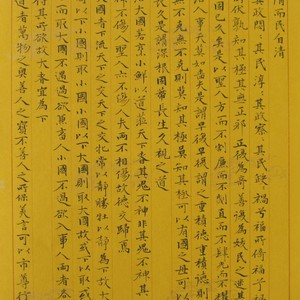 情而民自清
其政悶其民淳其政察其民缺禍兮福所倚福兮
伏孰知其極其無正邪正復為奇善復為妖民之迷其
日固已久矣是以聖人方而不割廉而不劌直而不肆光而不
治人事天莫如嗇夫唯嗇是謂早復早復謂之重積德重積德則
無不克無不克則莫知其極莫知其極可以有國有國之母可以
根固蒂長生久視之道
治大國若烹小鮮以道莅天下者其鬼不神非其鬼不神其
神不傷人聖人亦不傷人夫兩不相傷故德交歸焉
大國者下流天下之交天下之交牝常以靜勝牡以靜為下故大
國以下小國則取小國小國以下大國則取大國故或下以取或下
而取大國不過欲兼畜人小國不過欲入事人兩者各
得其所欲故大者宜為下
道者萬物之奥善人之寶不善人之所保美言可以市尊行